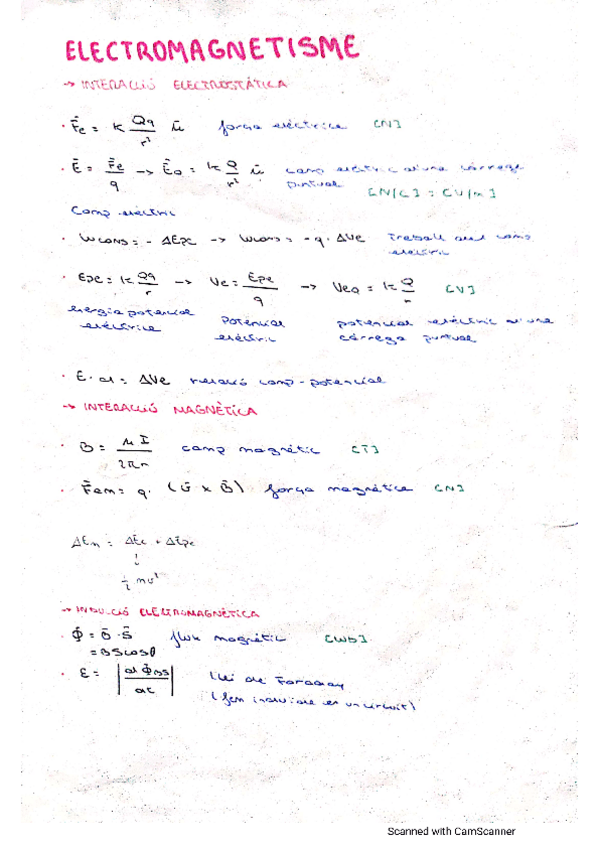 ELECTROMAGNETISME
→ INTERACCIÓ ELECTROSTÀTICA
· F⃗e = K Qq/r² u⃗ força elèctrica [N]
· E⃗ = F⃗e/q → E⃗Q = K Q/r² u⃗ camp elèctric d'una càrrega puntual [N/C] = [V/m]
Camp elèctric
· Wcons = - ΔEpe → Wcons = -q · ΔVe Treball del camp elèctric
· Epe = K Qq/r → Ve = Epe/q → VeQ = K Q/r [V]
energia potencial elèctrica
Potencial elèctric
potencial elèctric d'una càrrega puntual
· E · d = ΔVe relació camp-potencial
→ INTERACCIÓ MAGNÈTICA
· B = μ I/2πr camp magnètic [T]
· F⃗em = q · (v⃗ x B⃗) força magnètica [N]
ΔEm = ΔEc + ΔEpe
↓
½ mv²
→ INDUCCIÓ ELECTROMAGNÈTICA
· Φ = B⃗ · S⃗ flux magnètic [Wb]
= BScosθ
· ε = |dΦ/dt| Llei de Faraday
(fem induïda en un circuit)
Scanned with CamScanner